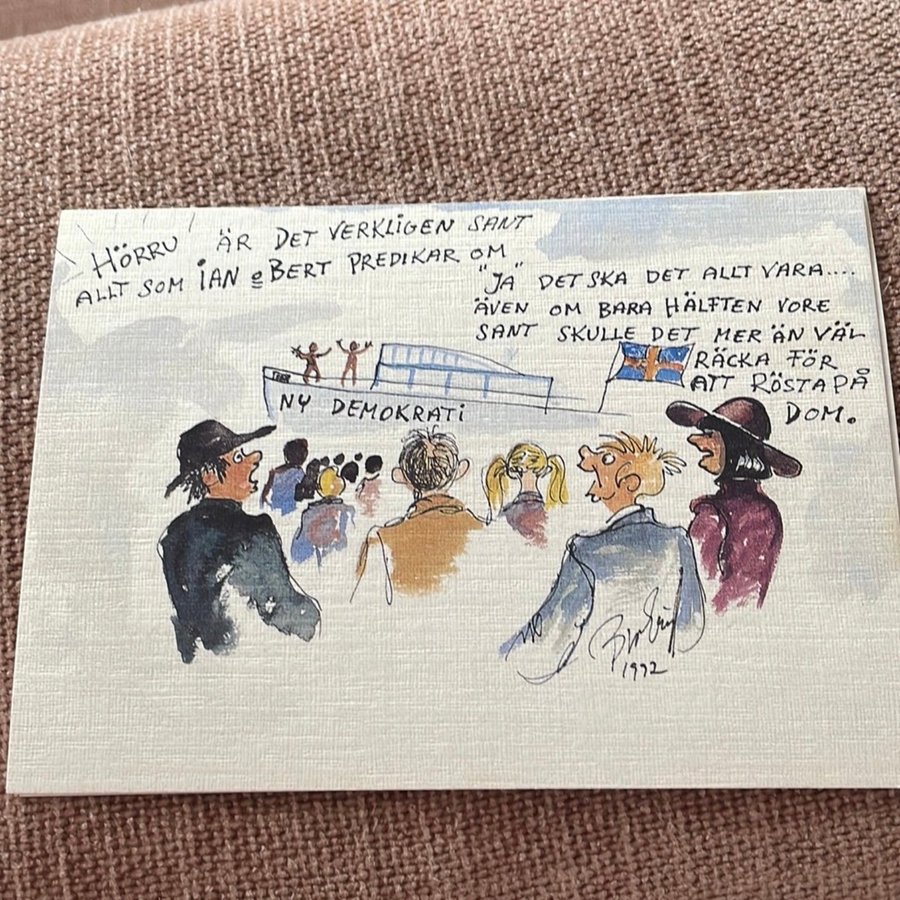 HÖRRU ÄR DET VERKLIGEN SANT
ALLT SOM IAN e BERT PREDIKAR OM
"JA" DET SKA DET ALLT VARA....
ÄVEN OM BARA HÄLFTEN VORE
SANT SKULLE DET MER ÄN VÄL
RÄCKA FÖR
ATT RÖSTA PÅ
DOM.
NY DEMOKRATI
1992